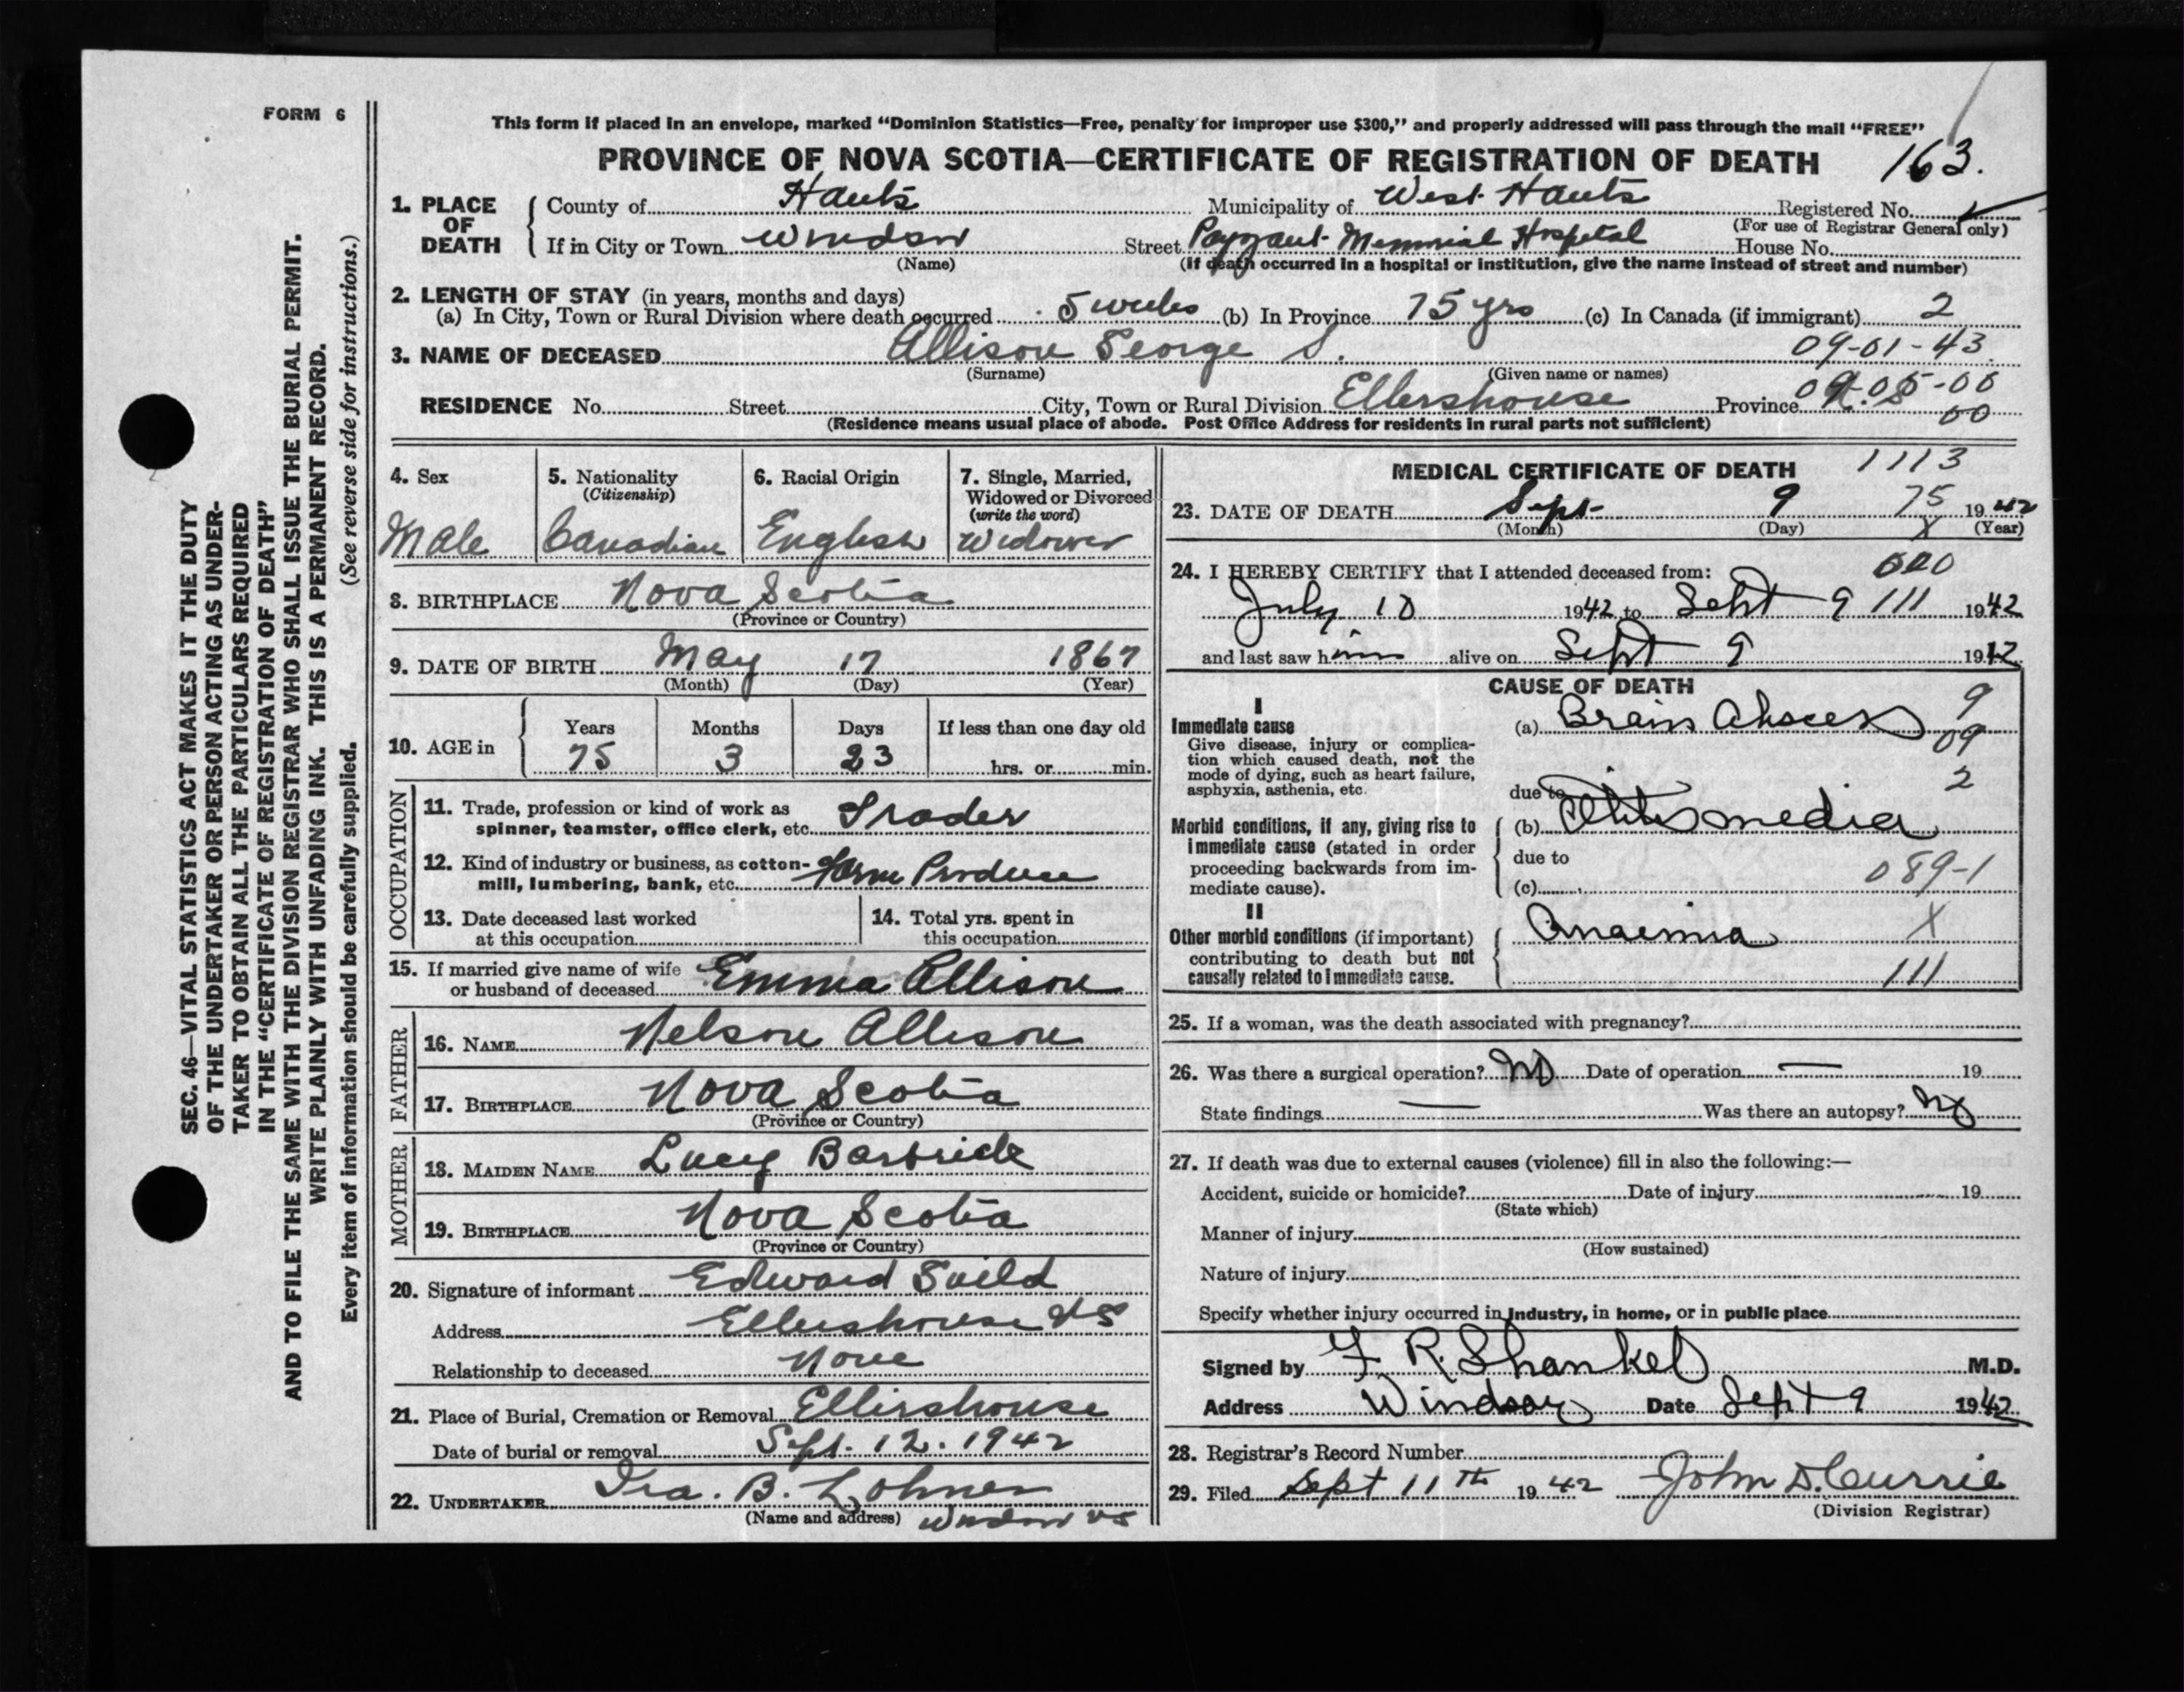 FORM 6
This form if placed in an envelope, marked “Dominion Statistics—Free, penalty for improper use $300,” and properly addressed will pass through the mail “FREE”
PROVINCE OF NOVA SCOTIA—CERTIFICATE OF REGISTRATION OF DEATH 163.
1. PLACE OF DEATH { County of Hants Municipality of West Hants Registered No.
(For use of Registrar General only)
If in City or Town Windsor Street Payzant Memorial Hospital House No.
(Name) (If death occurred in a hospital or institution, give the name instead of street and number)
2. LENGTH OF STAY (in years, months and days)
(a) In City, Town or Rural Division where death occurred 5 weeks (b) In Province 75 yrs (c) In Canada (if immigrant) 2
3. NAME OF DECEASED Allison George S. 09-01-43
(Surname) (Given name or names)
RESIDENCE No. Street City, Town or Rural Division Ellershouse Province N.S. 09-05-00
00
(Residence means usual place of abode. Post Office Address for residents in rural parts not sufficient)
4. Sex
Male
5. Nationality
(Citizenship)
Canadian
6. Racial Origin
English
7. Single, Married,
Widowed or Divorced
(write the word)
Widower
8. BIRTHPLACE Nova Scotia
(Province or Country)
9. DATE OF BIRTH May 17 1867
(Month) (Day) (Year)
10. AGE in { Years Months Days If less than one day old
75 3 23 hrs. or min.
OCCUPATION
11. Trade, profession or kind of work as
spinner, teamster, office clerk, etc. Trader
12. Kind of industry or business, as cotton-
mill, lumbering, bank, etc. Farm Produce
13. Date deceased last worked
at this occupation
14. Total yrs. spent in
this occupation
15. If married give name of wife
or husband of deceased Emma Allison
FATHER
16. NAME Nelson Allison
17. BIRTHPLACE Nova Scotia
(Province or Country)
MOTHER
18. MAIDEN NAME Lucy Barbrick
19. BIRTHPLACE Nova Scotia
(Province or Country)
20. Signature of informant Edward
Address Ellershouse NS
Relationship to deceased None
21. Place of Burial, Cremation or Removal Ellershouse
Date of burial or removal Sept. 12. 1942
22. UNDERTAKER Ira. B. Lohnes
(Name and address) Windsor NS
MEDICAL CERTIFICATE OF DEATH 1113
23. DATE OF DEATH Sept 9 75 1942
(Month) (Day) X (Year)
24. I HEREBY CERTIFY that I attended deceased from:
July 10 1942 to Sept 9 111 1942
and last saw him alive on Sept 9 1942
CAUSE OF DEATH
I
Immediate cause
Give disease, injury or complica-
tion which caused death, not the
mode of dying, such as heart failure,
asphyxia, asthenia, etc.
(a) Brain Abscess 9
09
due to 2
Morbid conditions, if any, giving rise to
immediate cause (stated in order
proceeding backwards from im-
mediate cause).
(b) Otitis media
due to
(c) 089-1
II
Other morbid conditions (if important)
contributing to death but not
causally related to immediate cause.
Anaemia X
111
25. If a woman, was the death associated with pregnancy?
26. Was there a surgical operation? No Date of operation — 19
State findings — Was there an autopsy? No
27. If death was due to external causes (violence) fill in also the following:—
Accident, suicide or homicide? Date of injury 19
(State which)
Manner of injury
(How sustained)
Nature of injury
Specify whether injury occurred in Industry, in home, or in public place
Signed by F. R. Shankel M.D.
Address Windsor Date Sept 9 1942
28. Registrar's Record Number
29. Filed Sept 11th 1942 John D. Currie
(Division Registrar)
SEC. 46—VITAL STATISTICS ACT MAKES IT THE DUTY
OF THE UNDERTAKER OR PERSON ACTING AS UNDER-
TAKER TO OBTAIN ALL THE PARTICULARS REQUIRED
IN THE “CERTIFICATE OF REGISTRATION OF DEATH”
AND TO FILE THE SAME WITH THE DIVISION REGISTRAR WHO SHALL ISSUE THE BURIAL PERMIT.
WRITE PLAINLY WITH UNFADING INK. THIS IS A PERMANENT RECORD.
Every item of information should be carefully supplied. (See reverse side for instructions.)